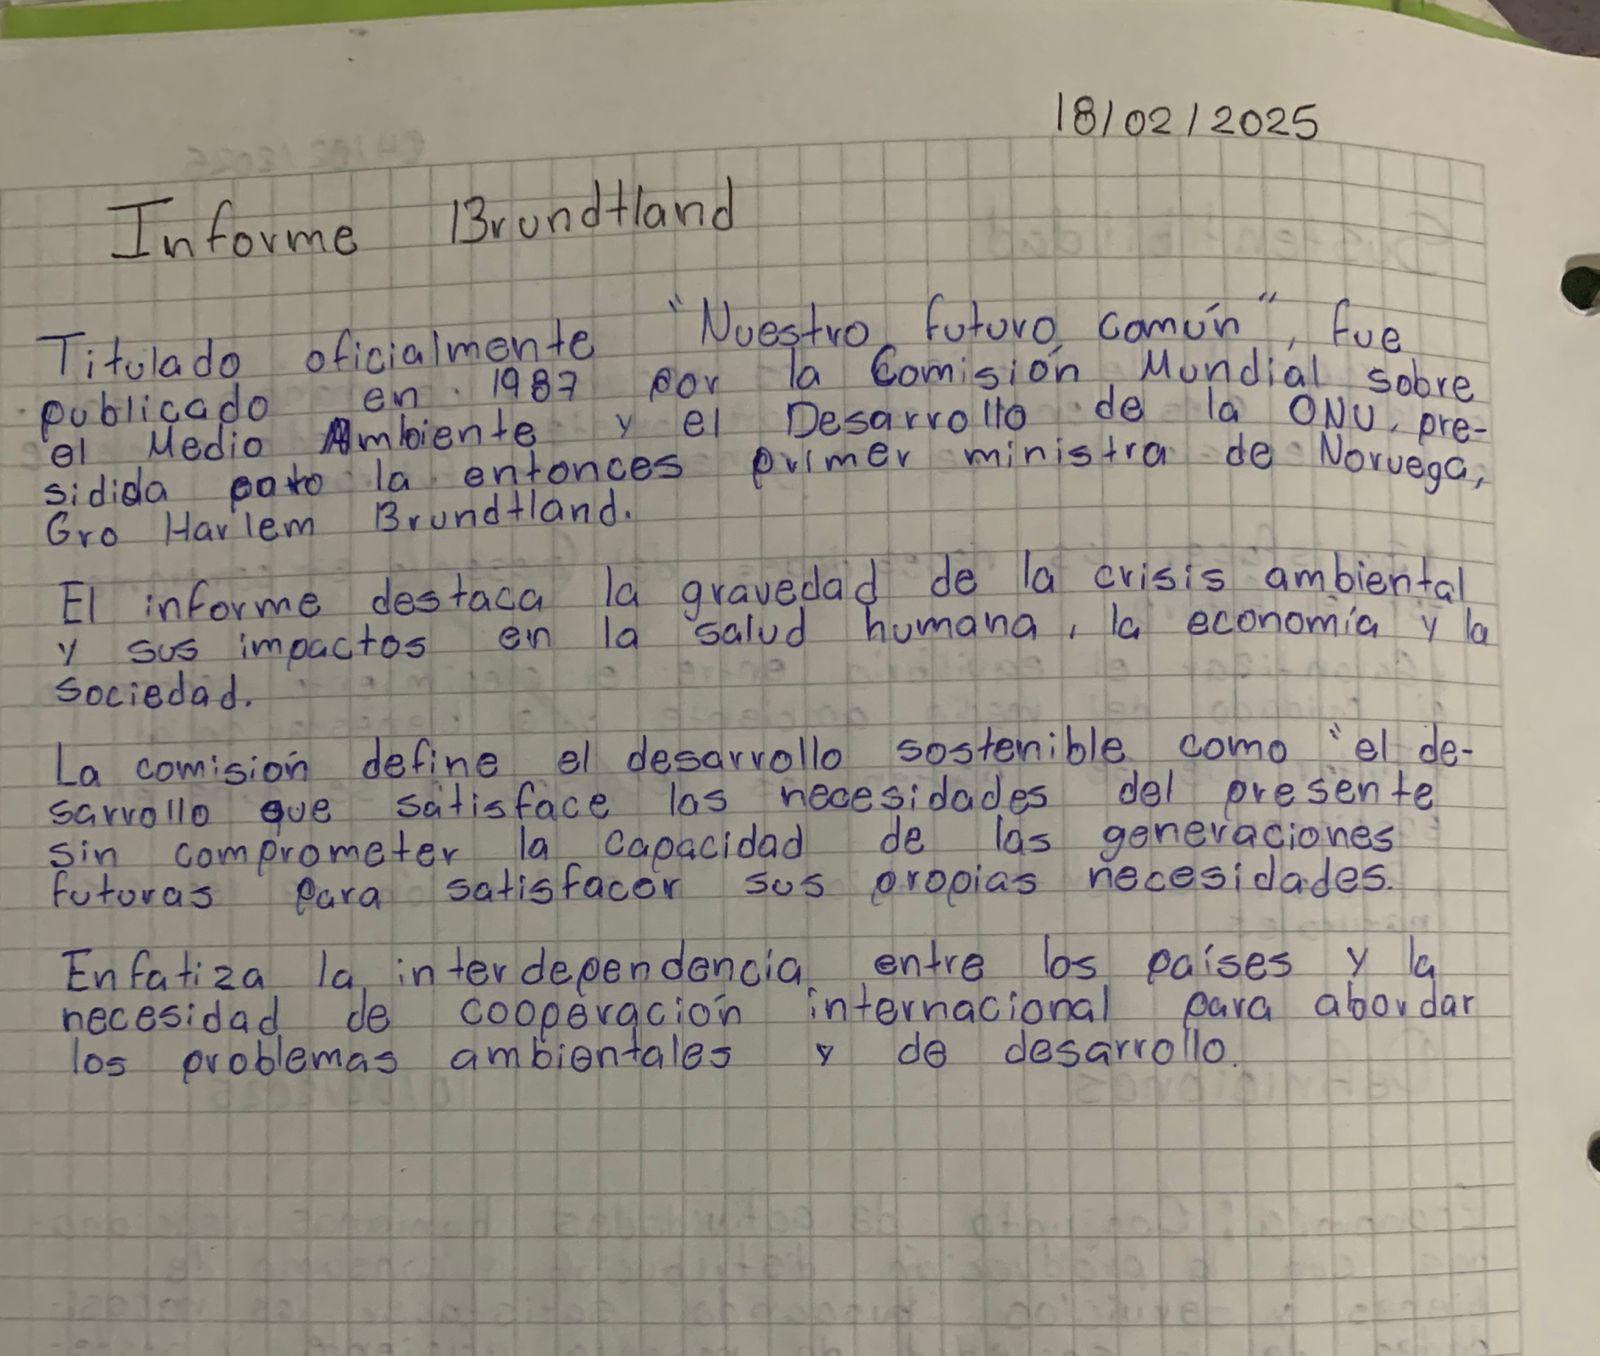 18/02/2025
Informe Brundtland
Titulado oficialmente "Nuestro futuro común", fue
publicado en 1987 por la Comisión Mundial sobre
el Medio Ambiente y el Desarrollo de la ONU, pre-
sidida la entonces primer ministra de Noruega,
Gro Harlem Brundtland.
El informe destaca la gravedad de la crisis ambiental
y sus impactos en la salud humana, la economía y la
sociedad.
La comisión define el desarrollo sostenible como "el de-
sarrollo que satisface las necesidades del presente
sin comprometer la capacidad de las generaciones
futuras para satisfacer sus propias necesidades.
Enfatiza la interdependencia entre los países y la
necesidad de cooperación internacional para abordar
los problemas ambientales y de desarrollo.